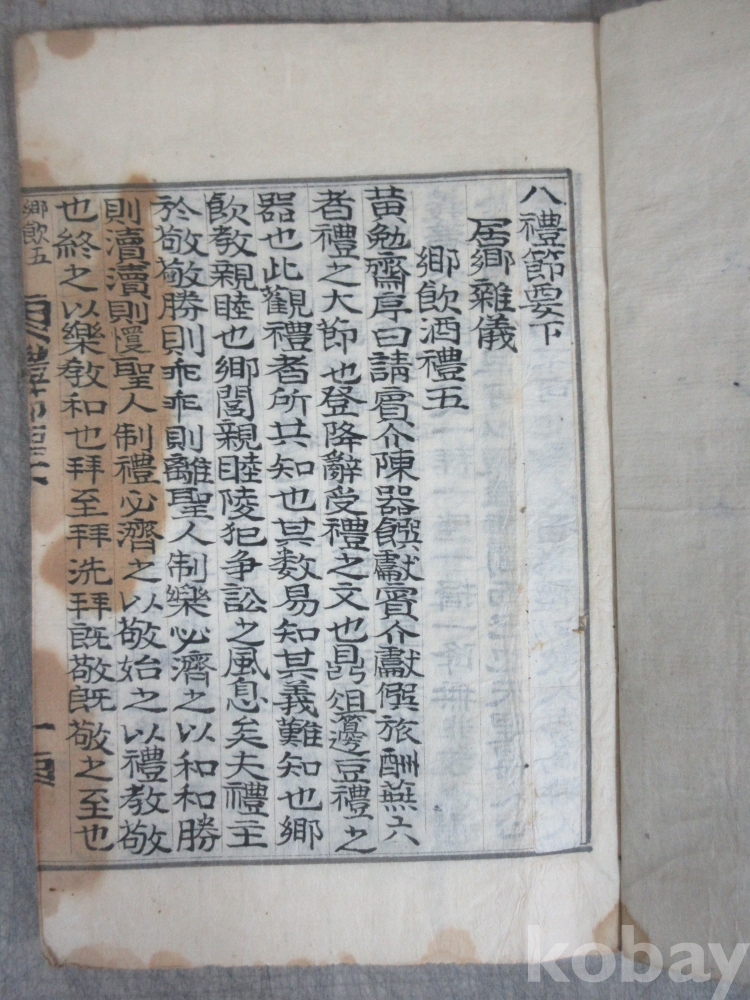 八禮節要下
居鄉雜儀
鄉飲酒禮五
黃勉齋序曰請賓介陳器饌獻賓介獻僎旅酬燕六
者禮之大節也登降辭受禮之文也鼎俎籩豆禮之
器也此觀禮者所共知也其数易知其義難知也鄉
飲教親睦也鄉閭親睦陵犯爭訟之風息矣夫禮主
於敬敬勝則乖乖則離聖人制樂必濟之以和和勝
則瀆瀆則慢聖人制禮必濟之以敬始之以禮教敬
也終之以樂教和也拜至拜洗拜旣敬旣敬之至也
鄉飲五
禮節
一
kobay